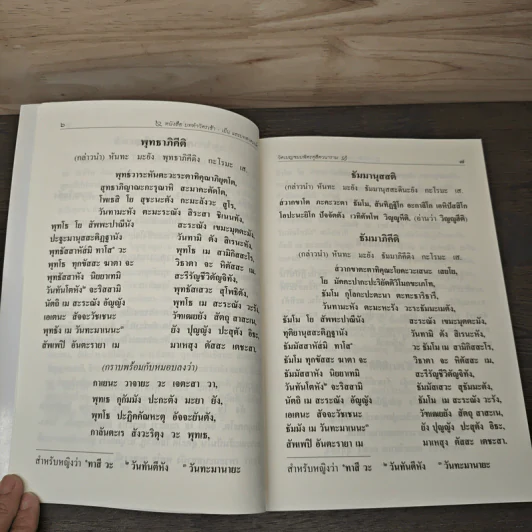 ๖
พุทธาภิคีติ
(กล่าวนำ) หันทะ มะยัง พุทธาภิคีติง กะโรมะ เส.
พุทธ๎วาระหันตะวะระตาทิคุณาภิยุตโต,
สุทธาภิญาณะกะรุณาหิ สะมาคะตัตโต,
โพเธสิ โย สุชะนะตัง กะมะลังวะ สูโร,
วันทามะหัง ตะมะระณัง สิระสา ชิเนนทัง,
พุทโธ โย สัพพะปาณีนัง สะระณัง เขมะมุตตะมัง,
ปะฐะมานุสสะติฏฐานัง วันทามิ ตัง สิเรนะหัง,
พุทธัสสาหัส๎มิ ทาโส วะ พุทโธ เม สามิกิสสะโร,
พุทโธ ทุกขัสสะ ฆาตา จะ วิธาตา จะ หิตัสสะ เม,
พุทธัสสาหัง นิยยาเทมิ สะรีรัญชีวิตัญจิทัง,
วันทันโตหัง จะริสสามิ พุทธัสเสวะ สุโพธิตัง,
นัตถิ เม สะระณัง อัญญัง พุทโธ เม สะระณัง วะรัง,
เอเตนะ สัจจะวัชเชนะ วัฑเฒยยัง สัตถุ สาสะเน,
พุทธัง เม วันทะมาเนนะ ยัง ปุญญัง ปะสุตัง อิธะ,
สัพเพปิ อันตะรายา เม มาเหสุง ตัสสะ เตชะสา.
(กราบพร้อมกับหมอบลงว่า)
กาเยนะ วาจายะ วะ เจตะสา วา,
พุทเธ กุกัมมัง ปะกะตัง มะยา ยัง,
พุทโธ ปะฏิคคัณหะตุ อัจจะยันตัง,
กาลันตะเร สังวะริตุง วะ พุทเธ,
สำหรับหญิงว่า ทาสี วะ วันทันตีหัง วันทะมานายะ
ธัมมานุสสติ
(กล่าวนำ) หันทะ มะยัง ธัมมานุสสะตินะยัง กะโรมะ เส.
ส๎วากขาโต ภะคะวะตา ธัมโม, สันทิฏฐิโก อะกาลิโก เอหิปัสสิโก
โอปะนะยิโก ปัจจัตตัง เวทิตัพโพ วิญญูหีติ. (อ่านว่า วิญญูฮีติ)
ธัมมาภิคีติ
(กล่าวนำ) หันทะ มะยัง ธัมมาภิคีติง กะโรมะ เส.
ส๎วากขาตะตาทิคุณะโยคะวะเสนะ เสยโย,
โย มัคคะปากะปะริยัตติวิโมกขะเภโท,
ธัมโม กุโลกะปะตะนา ตะทะธาริธารี,
วันทามะหัง ตะมะหะรัง วะระธัมมะเมตัง,
ธัมโม โย สัพพะปาณีนัง สะระณัง เขมะมุตตะมัง,
ทุติยานุสสะติฏฐานัง วันทามิ ตัง สิเรนะหัง,
ธัมมัสสาหัส๎มิ ทาโส วะ ธัมโม เม สามิกิสสะโร,
ธัมโม ทุกขัสสะ ฆาตา จะ วิธาตา จะ หิตัสสะ เม,
ธัมมัสสาหัง นิยยาเทมิ สะรีรัญชีวิตัญจิทัง,
วันทันโตหัง จะริสสามิ ธัมมัสเสวะ สุธัมมะตัง,
นัตถิ เม สะระณัง อัญญัง ธัมโม เม สะระณัง วะรัง,
เอเตนะ สัจจะวัชเชนะ วัฑเฒยยัง สัตถุ สาสะเน,
ธัมมัง เม วันทะมาเนนะ ยัง ปุญญัง ปะสุตัง อิธะ,
สัพเพปิ อันตะรายา เม มาเหสุง ตัสสะ เตชะสา.
สำหรับหญิงว่า ทาสี วะ วันทันตีหัง วันทะมานายะ